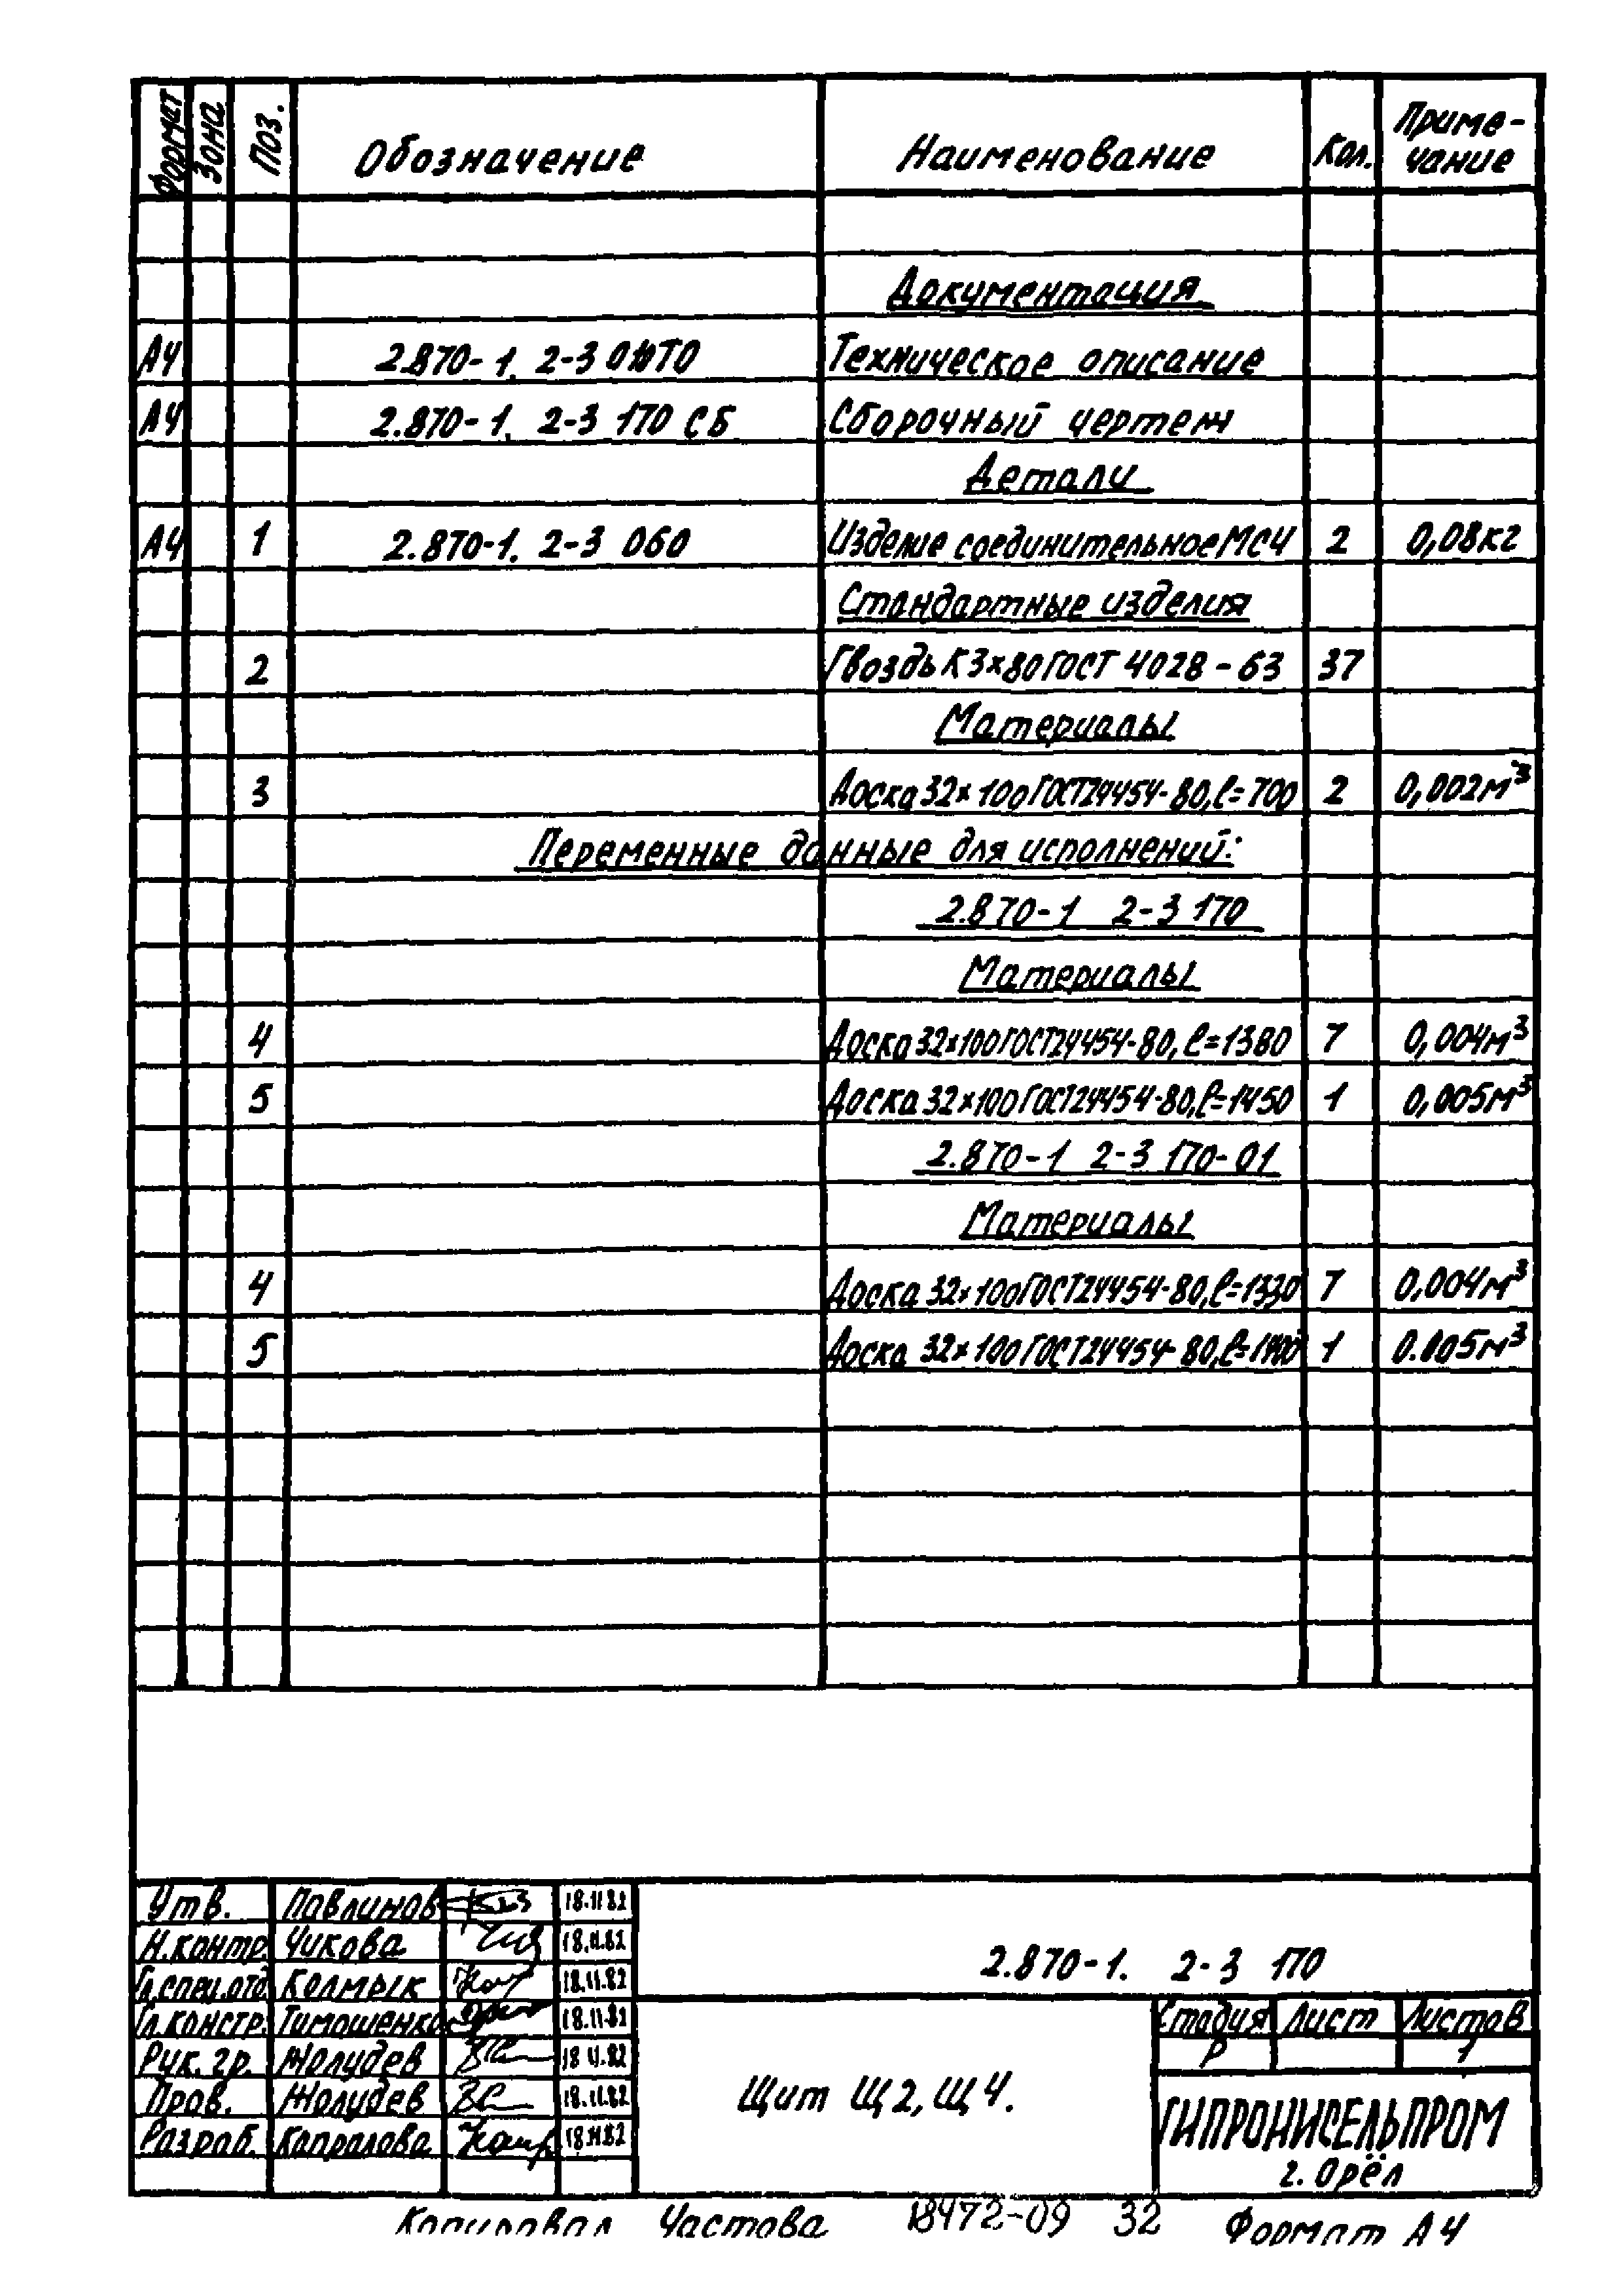 Формат Зона Поз. Обозначение Наименование Кол. Приме-
чание
Документация
А4 2.870-1. 2-3 010ТО Техническое описание
А4 2.870-1. 2-3 170 СБ Сборочный чертеж
Детали
А4 1 2.870-1. 2-3 060 Изделие соединительное МС4 2 0,08кг
Стандартные изделия
2 Гвоздь К3×80 ГОСТ 4028-63 37
Материалы
3 Доска 32×100 ГОСТ24454-80, ℓ=700 2 0,002м³
Переменные данные для исполнений:
2.870-1 2-3 170
Материалы
4 Доска 32×100 ГОСТ24454-80, ℓ=1380 7 0,004м³
5 Доска 32×100 ГОСТ24454-80, ℓ=1450 1 0,005м³
2.870-1 2-3 170-01
Материалы
4 Доска 32×100 ГОСТ24454-80, ℓ=1330 7 0,004м³
5 Доска 32×100 ГОСТ24454-80, ℓ=1400 1 0.005м³
Утв. Павлинов 18.11.82
Н.контр. Чикова 18.11.82
Гл.спец.отд. Колмык 18.11.82
Гл.констр. Тимошенко 18.11.82
Рук. гр. Жолудев 18.11.82
Пров. Жолудев 18.11.82
Разраб. Капралова 18.11.82
2.870-1. 2-3 170
Щит Щ2, Щ4.
Стадия Лист Листов
Р 1
ГИПРОНИСЕЛЬПРОМ
г. Орёл
Копировал Частова 18472-09 32 Формат А4